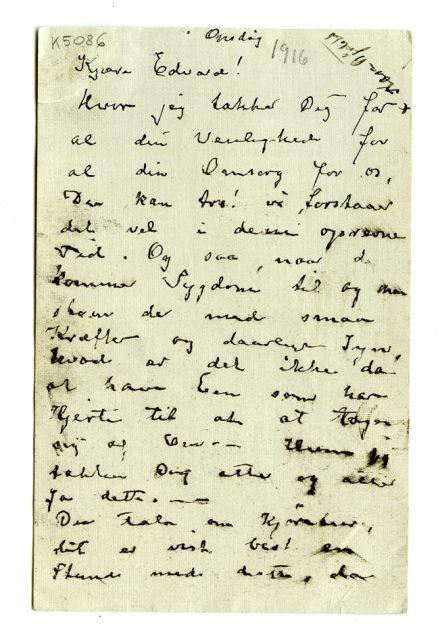 K5086
Onsdag
1916
Kjære Edvard!
Hvor jeg takker Dig for
al din Venlighed for
al din Omsorg for os,
Du kan tro! vi forstaaer
det vel i denne oprevne
Tid. Og saa, naar da
kommer Sygdom til og man
skræn de med smaa
Kræfter og daarlige Syn,
hvad er det ikke da
at have Een som har
Hjerte til at tage
sig af En — Hvor jeg
takker Dig atter og atter
for dette. —
Du taler om Kjørebrev,
det er vist best en
Stund med dette, da